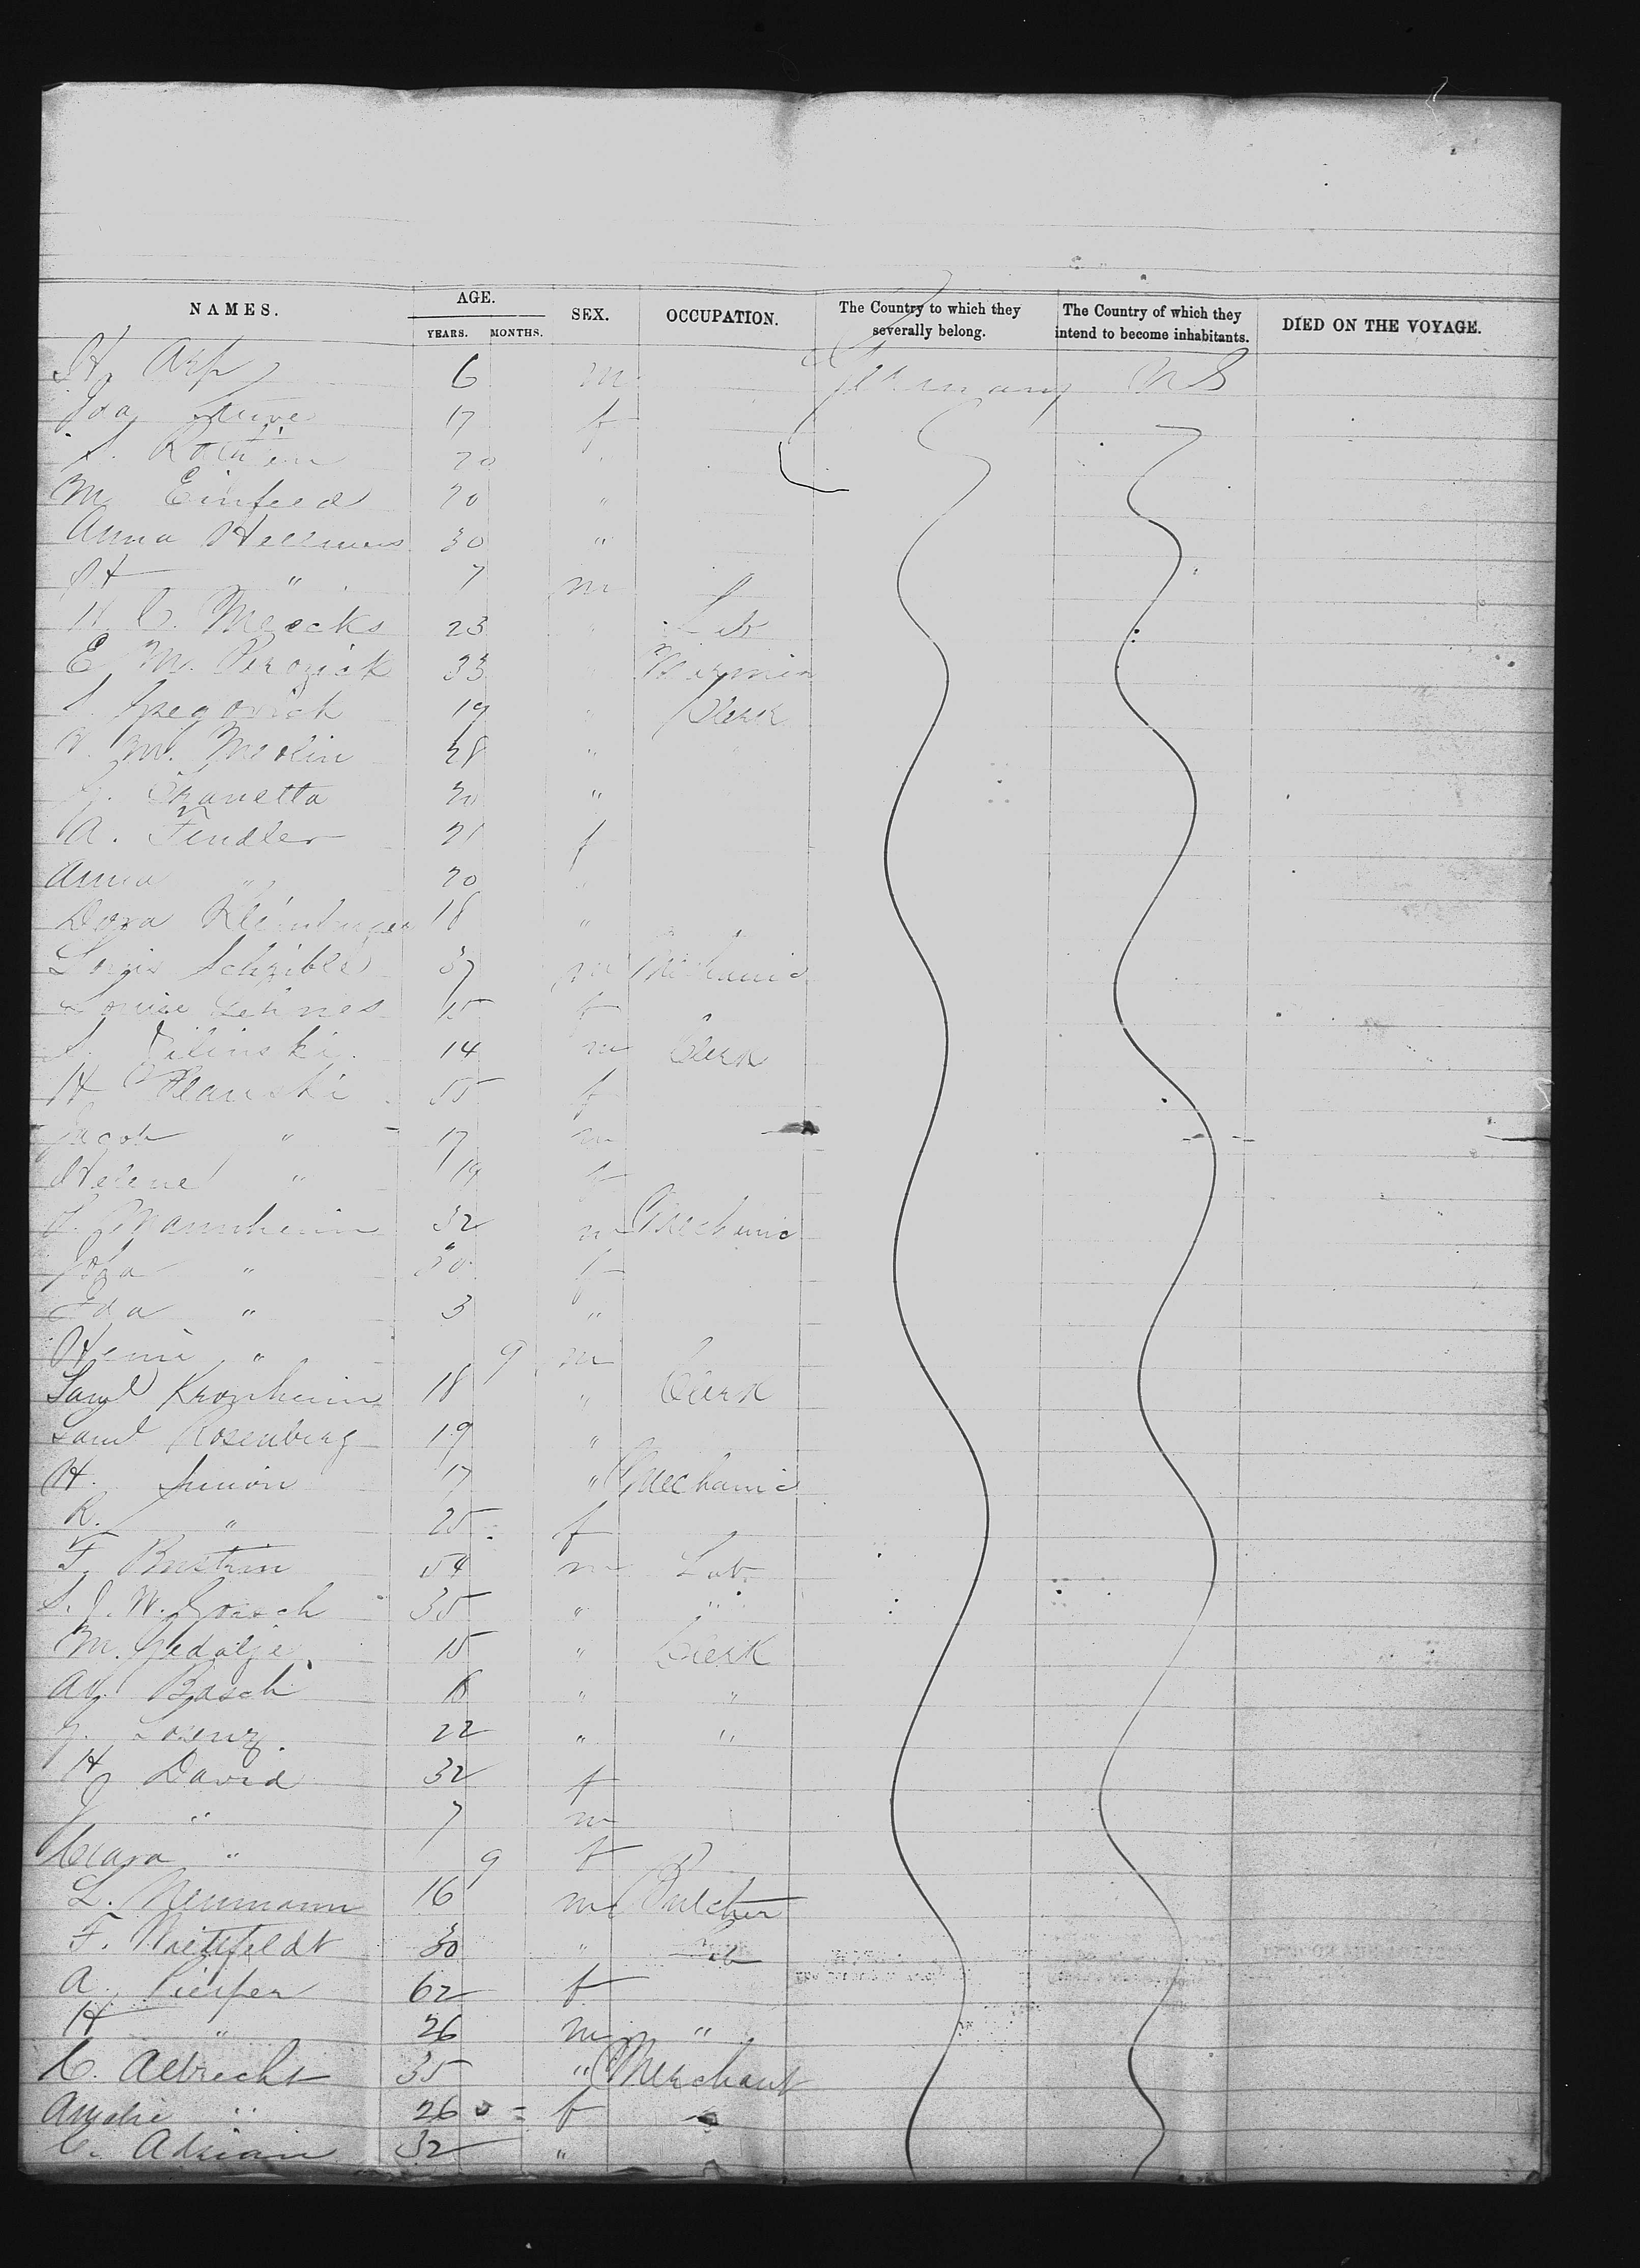 NAMES. AGE. SEX. OCCUPATION. The Country to which they severally belong. The Country of which they intend to become inhabitants. DIED ON THE VOYAGE.
YEARS. MONTHS.
H. Arp 6 m Germany U S
Ida 17 f
S. 20 "
M. Einfeed 20 "
Anna Hellmers 30 "
H " 7 m
H C. Meecks 23 " Lab
E M. 33
S. Gregovich 19 " Clerk
V. M. Merlin 28 "
Zkanetta 20 "
A. Fendler 21 f
Anna " 20 "
Dora 18 "
Louis Schzible 37 m Mechanic
Louise Lehnes 15 f
S. Vilinski 14 m Clerk
H Olanski 55 f
Jacob " 17 m
Helene " 19 f
S. Mannheim 32 m Mechanic
" 30 f
Ida " 3 "
" 9 m
Saml Kronheim 18 " Clerk
Saml Rosenberg 19 "
H. Simon 17 " Mechanic
R. " 25 f
F. Bustrin 54 m Lab
S. J. W. 35 " "
M. Gedalje 15 " Clerk
Ag Basch " "
J. Lorenz. 22 " "
H David 32 f
J " 7 m
Clara " 9 f
L. Neumann 16 m Butcher
F. 30 " Lab
A. Pieper 62 f
H " 26 m "
C. Albrecht 35 " Merchant
Amalie " 26 f
C. Adrian 32 "